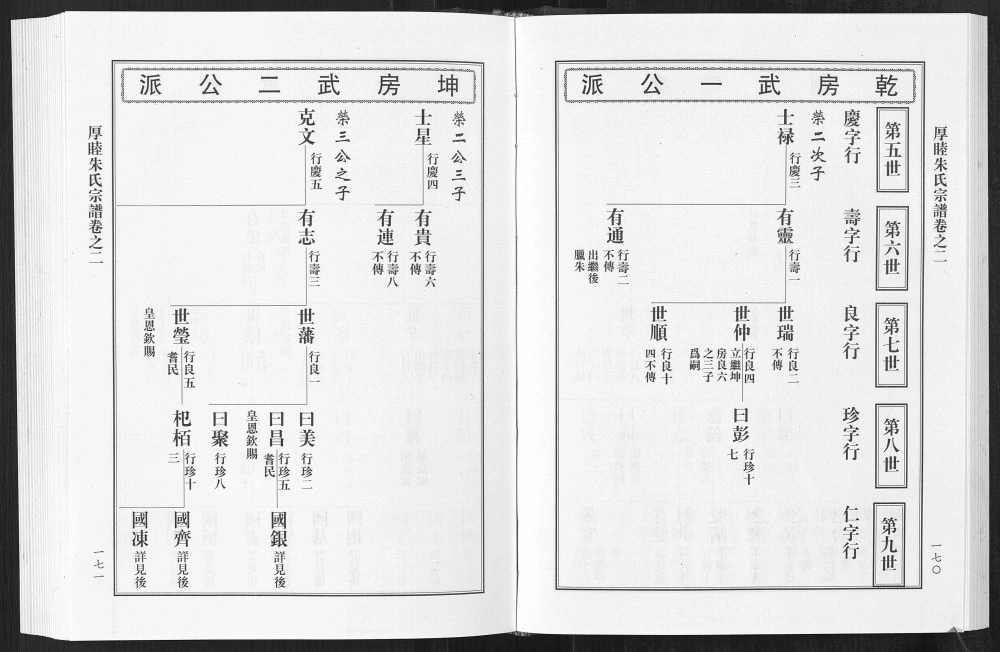 厚睦朱氏宗譜卷之二
一七〇
乾房武一公派
第五世
慶字行
榮二次子
士禄
行慶三
第六世
壽字行
有靈
行壽一
有通
行壽二
不傳
出繼後
臘朱
第七世
良字行
世瑞
行良二
不傳
世仲
行良四
立繼坤
房良六
之三子
爲嗣
世順
行良十
四不傳
第八世
珍字行
曰彭
行珍十
七
第九世
仁字行
坤房武二公派
榮二公三子
士星
行慶四
榮三公之子
克文
行慶五
有貴
行壽六
不傳
有連
行壽八
不傳
有志
行壽三
世藩
行良一
世瑩
行良五
耆民
皇恩欽賜
曰美
行珍二
曰昌
行珍五
耆民
皇恩欽賜
曰聚
行珍八
杞栢
行珍十
三
國銀
詳見後
國齊
詳見後
國凍
詳見後
厚睦朱氏宗譜卷之二
一七一